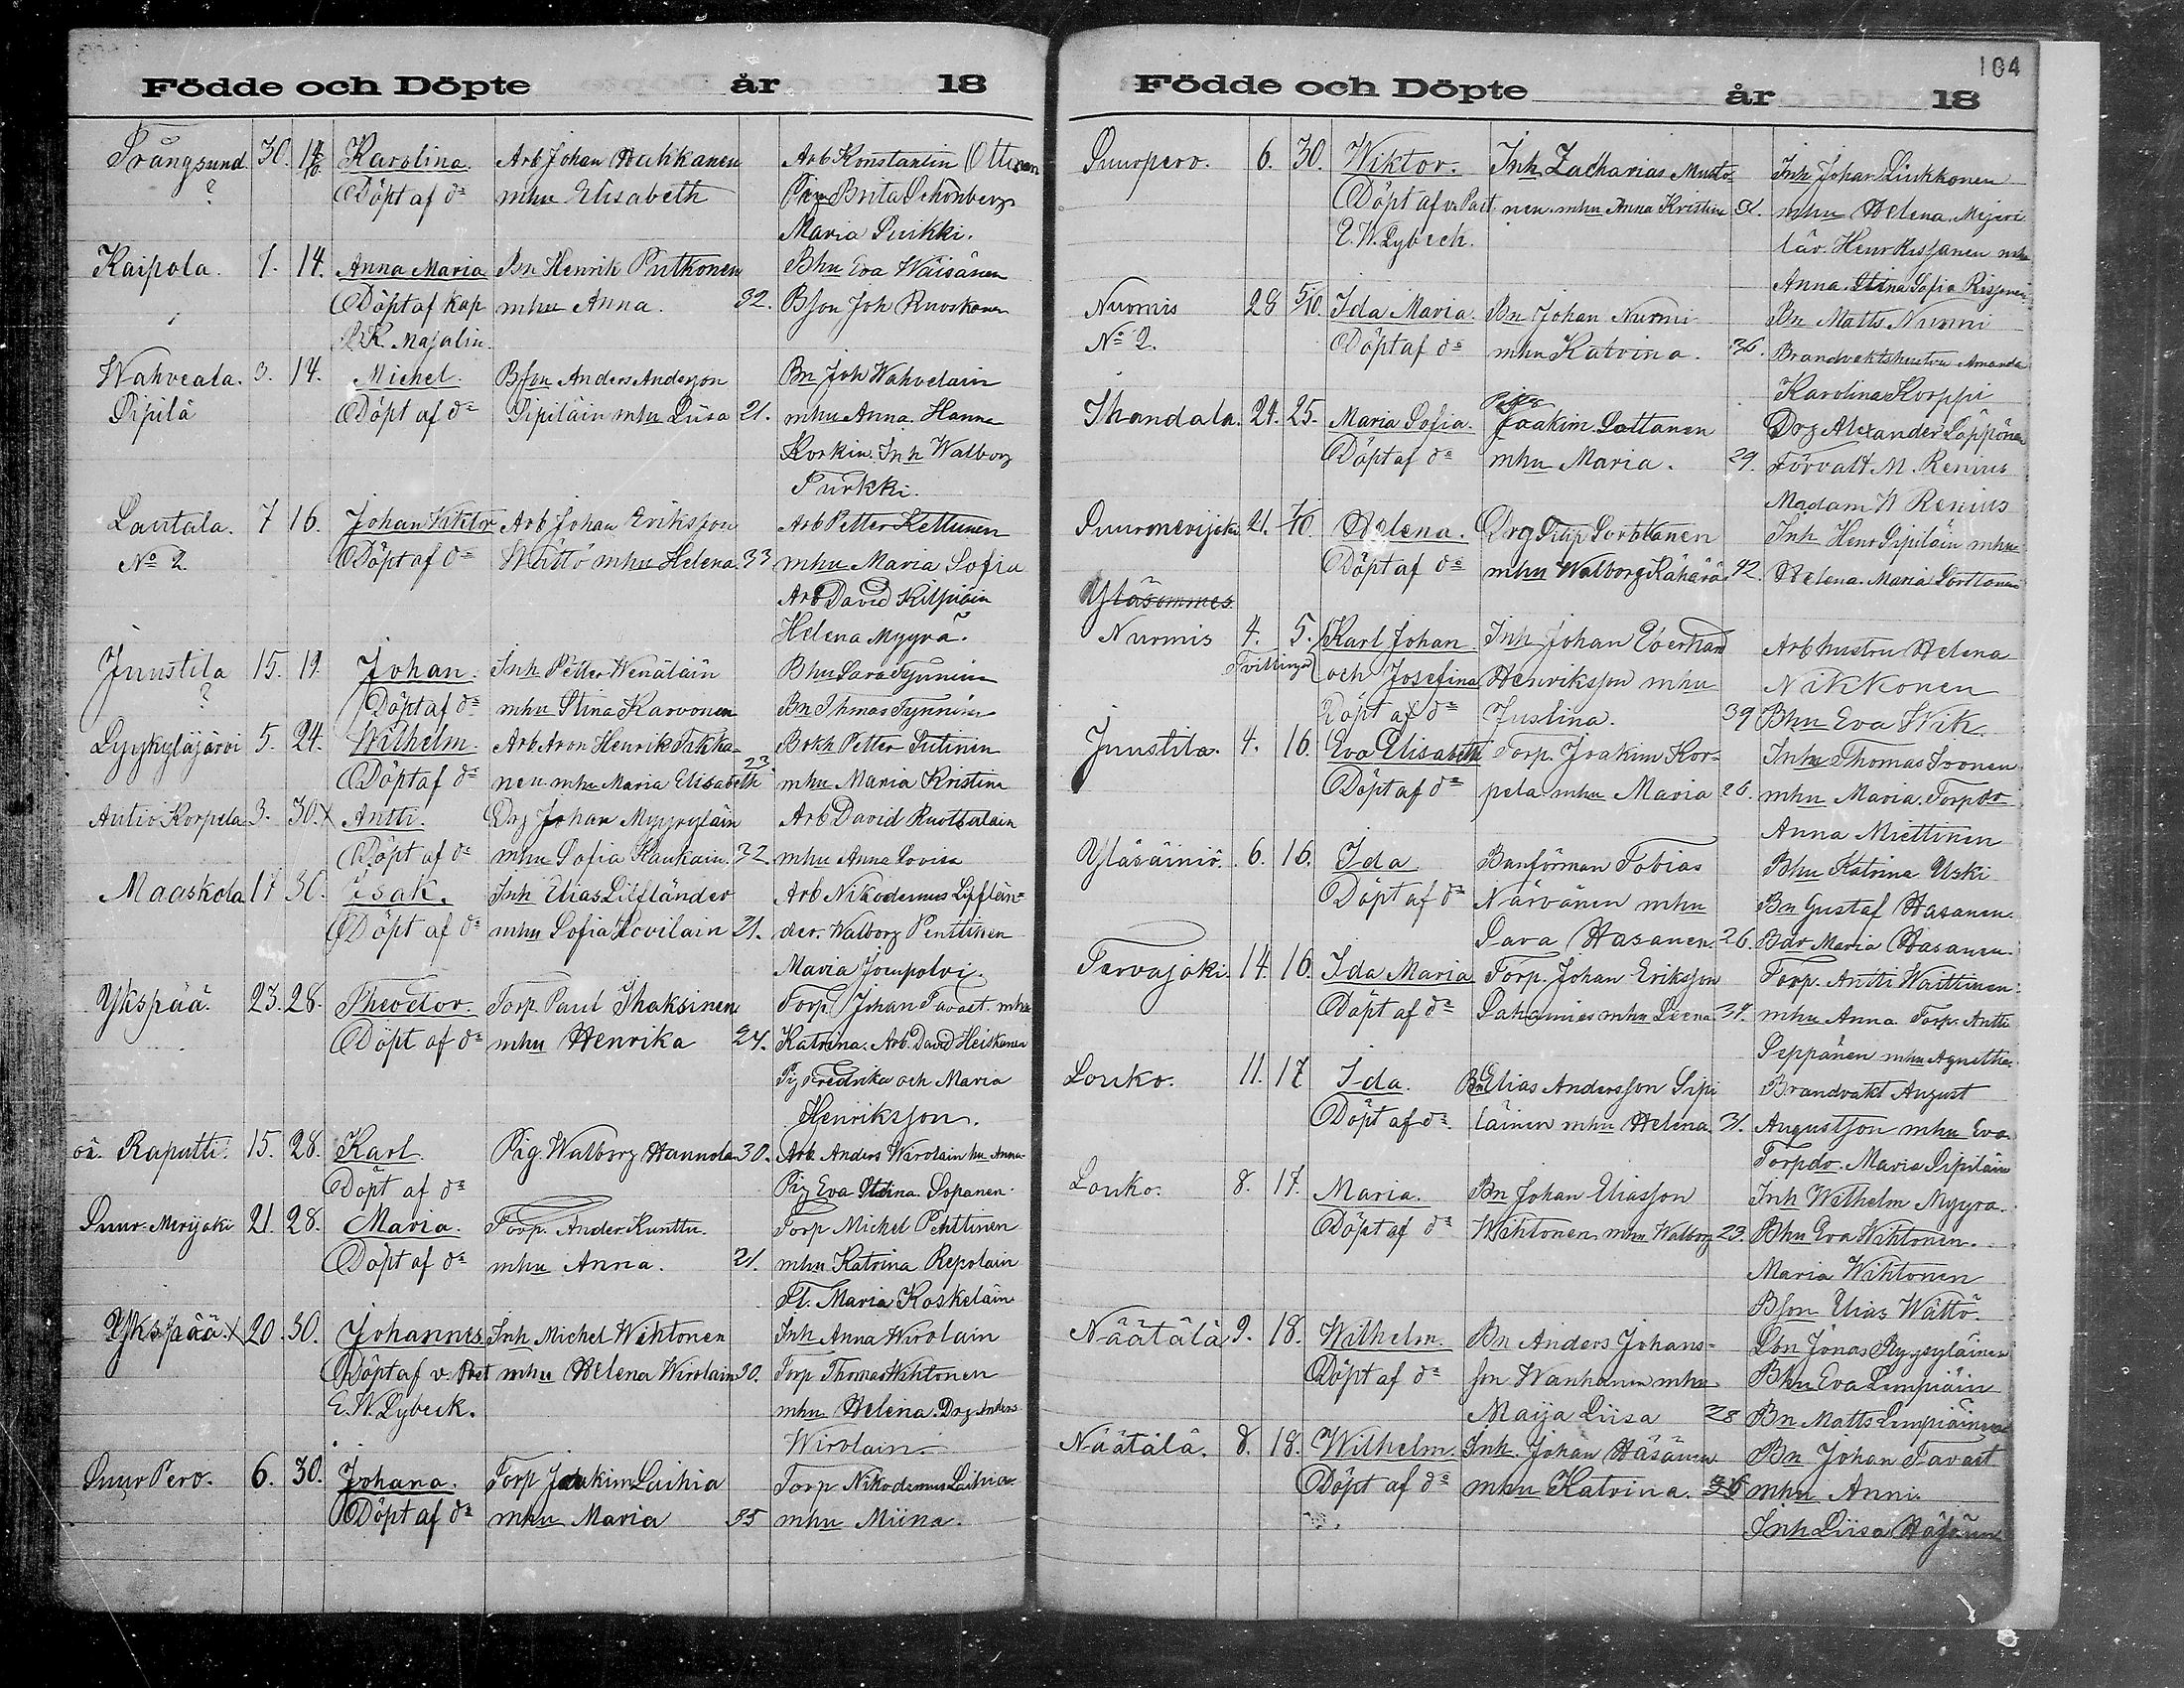 Födde och Döpte år 18
Trångsund 30. 14/10 Karolina. Arb Johan Hakkanen Arb Konstantin Ottinen
? Döpt af d:o mhu Elisabeth Pig Brita Schönberg
Maria Suikki.
Kaipola. 7. 14. Anna Maria Bn Henrik Putkonen Bhu Eva Wäisänen
Döpt af Kap mhu Anna. 32. BSon Joh Ruoskanen
K. Majalin.
Wahveala. 3. 14. Michel. BSon Anders Andersson Bn Joh Wahvelain
Sipilä Döpt af d:o Sipiläin mhu Liisa 21. mhu Anna. Hanna
Korkin. Inh Walborg
Purkki.
Lautala. 7 16. Johan Viktor Arb Johan Eriksson Arb Petter Kettunen
No 2 Döpt af d:o Wättö mhu Helena. 33 mhu Maria Sofia
Arb David Kilpiäin
Helena Myyrä.
Juustila 15. 19. Johan. Inh Petter Wenäläin Bhu Sara Tynnin
? Döpt af d:o mhu Stina Karvonen Bn Thmas Tynninen
Lyykyläjärvi 5. 24. Wilhelm. Arb Aron Henrik Takka- Bokh Petter Putinen
Döpt af d:o nen mhu Maria Elisabeth 23. mhu Maria Kristina
Autio Korpela 3. 30. x Antti. Drg Johan Myyryläin Arb David Ruottulain
Döpt af d:o mhu Sofia Kaukain. 32. mhu Anna Lovisa
Maaskola 17 30. Esak. Inh Elias Lifländer Arb Nikodemus Lifflän-
Döpt af d:o mhu Sofia Hovilain 21. der. Walborg Penttinen
Maria Jompolvi.
Ykspää. 23. 28. Theodor. Torp. Paul Ihaksinen Torp. Johan Tavast. mhu
Döpt af d:o mhu Henrika 24. Katrina. Arb. David Heiskanen
Pig Fredrika och Maria
Henriksson.
Raputti. 15. 28. Karl. Pig. Walborg Hannola 30. Arb. Anders Wirolain hu Anna
Döpt af d:o Pig Eva Stina. Sopanen.
Suur-Merijoki 21. 28. Maria. Torp. Ander Kunttu. Torp Michel Pehttinen
Döpt af d:o mhu Anna. 21. mhu Katrina Repolain
Fl. Maria Koskelain
Ykspää. x 20. 30. Johannes Inh Michel Wihtonen Inh Anna Wirolain
Döpt af v. Past mhu Helena Wirolain 30. Torp Thomas Wihtonen
E. W. Lybeck. mhu Helena. Drg Anders
Wirolain
Suur Pero. 6. 30. Johana. Torp Joakim Laihia Torp Nikodemus Laihia
Döpt af d:o mhu Maria 35 mhu Miina.
104
Födde och Döpte år 18
Suurpero. 6. 30. Wiktor. Inh Zacharias Musto- Inh Johan Liukkonen
Döpt af v. Past nen. mhu Anna Kristina 31. mhu Helena. Mejeri
E. W. Lybeck. lär. Henr Rissanen mhu
Anna Stina Sofia Rissanen.
Nurmis 28 5/10. Ida Maria. Bn Johan Nurmi Bn Matts Nurmi
No 2. Döpt af d:o mhu Katrina. 36. Brandvaktshustru Amanda
Karolina Korppi
Ihandala. 24. 25. Maria Sofia. Joakim Lottanen Drg Alexander Läppönen
Döpt af d:o mhu Maria. 29. Förvalt M. Renius
Madam W Renius
Suurmerijoki 21. 1/10. Helena. Drg Filip Sorttanen Inh Henr Sipiläin mhu
Döpt af d:o mhu Walborg Kähärä 42. Helena. Maria Sorttanen
Yläsommes
Nurmis 4. 5. Karl Johan Inh Johan Eberhard Arbhustru Helena
Tvillingar och Josefina Henriksson mhu Nikkonen
Döpt af d:o Justina. 39 Bhu Eva Wik.
Juustila. 4. 16. Eva Elisabeth Torp. Joakim Kor- Inh Thomas Ivonen
Döpt af d:o pela mhu Maria 26. mhu Maria. Torpdr
Anna Miettinen
Yläsäiniö. 6. 16. Ida Banförman Tobias Bhu Katrina Uski
Döpt af d:o Närvänen mhu Bn Gustaf Hasanen.
Sara Hasanen. 26. Bdr Maria Hasanen.
Tervajoki. 14. 16. Ida Maria Torp. Johan Eriksson Torp. Antti Waittinen.
Döpt af d:o Lahomies mhu Leena. 34. mhu Anna. Torp. Antti
Seppänen mhu Agnetta.
Louko. 11. 17 Ida. Bn Elias Andersson Sipi Brandvakt August
Döpt af d:o läinen mhu Helena. 31. Augustsson mhu Eva.
Torpdr. Maria Sipiläin
Louko. 8. 17. Maria. Bn Johan Eliasson Inh Wilhelm Myyrä.
Döpt af d:o Wihtonen mhu Walborg 23. Bhu Eva Wihtonen.
Maria Wihtonen
BSon Elias Wättö.
Näätälä 9. 18. Wilhelm. Bn Anders Johans- Lbn Jonas Ryysyläinen
Döpt af d:o son Wanhanen mhu Bhu Eva Limpiäin
Maija Liisa 28 Bn Matts Limpiäinen
Näätälä. 8. 18. Wilhelm. Inh. Johan Häsänen Bn Johan Tavast
Döpt af d:o mhu Katrina. 36 mhu Anni.
Inh Liisa Häsänen